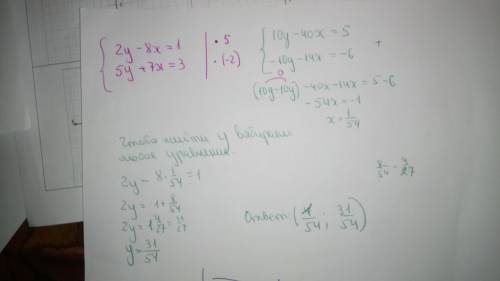 { 2y - 8x = 1 | · 5
5y + 7x = 3 | · (-2)
{ 10y - 40x = 5
-10y - 14x = -6 +
0
(10y - 10y) - 40x - 14x = 5 - 6
- 54x = -1
x = 1/54
Чтобы найти y
любое уравнение.
2y - 8 · 1/54 = 1
2y = 1 + 8/54
2y = 1 4/27 = 31/27
y = 31/54
8/54 = 4/27
Ответ: (1/54 ; 31/54)